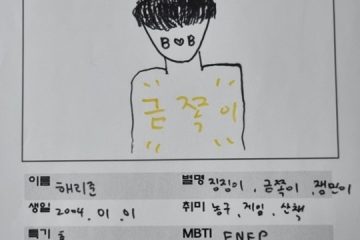 B♥B
금쪽이
이름 해리준 별명 징징이, 금쪽이, 잼민이
생일 2004. 01. 01 취미 농구, 게임, 산책
특기 MBTI ENFP